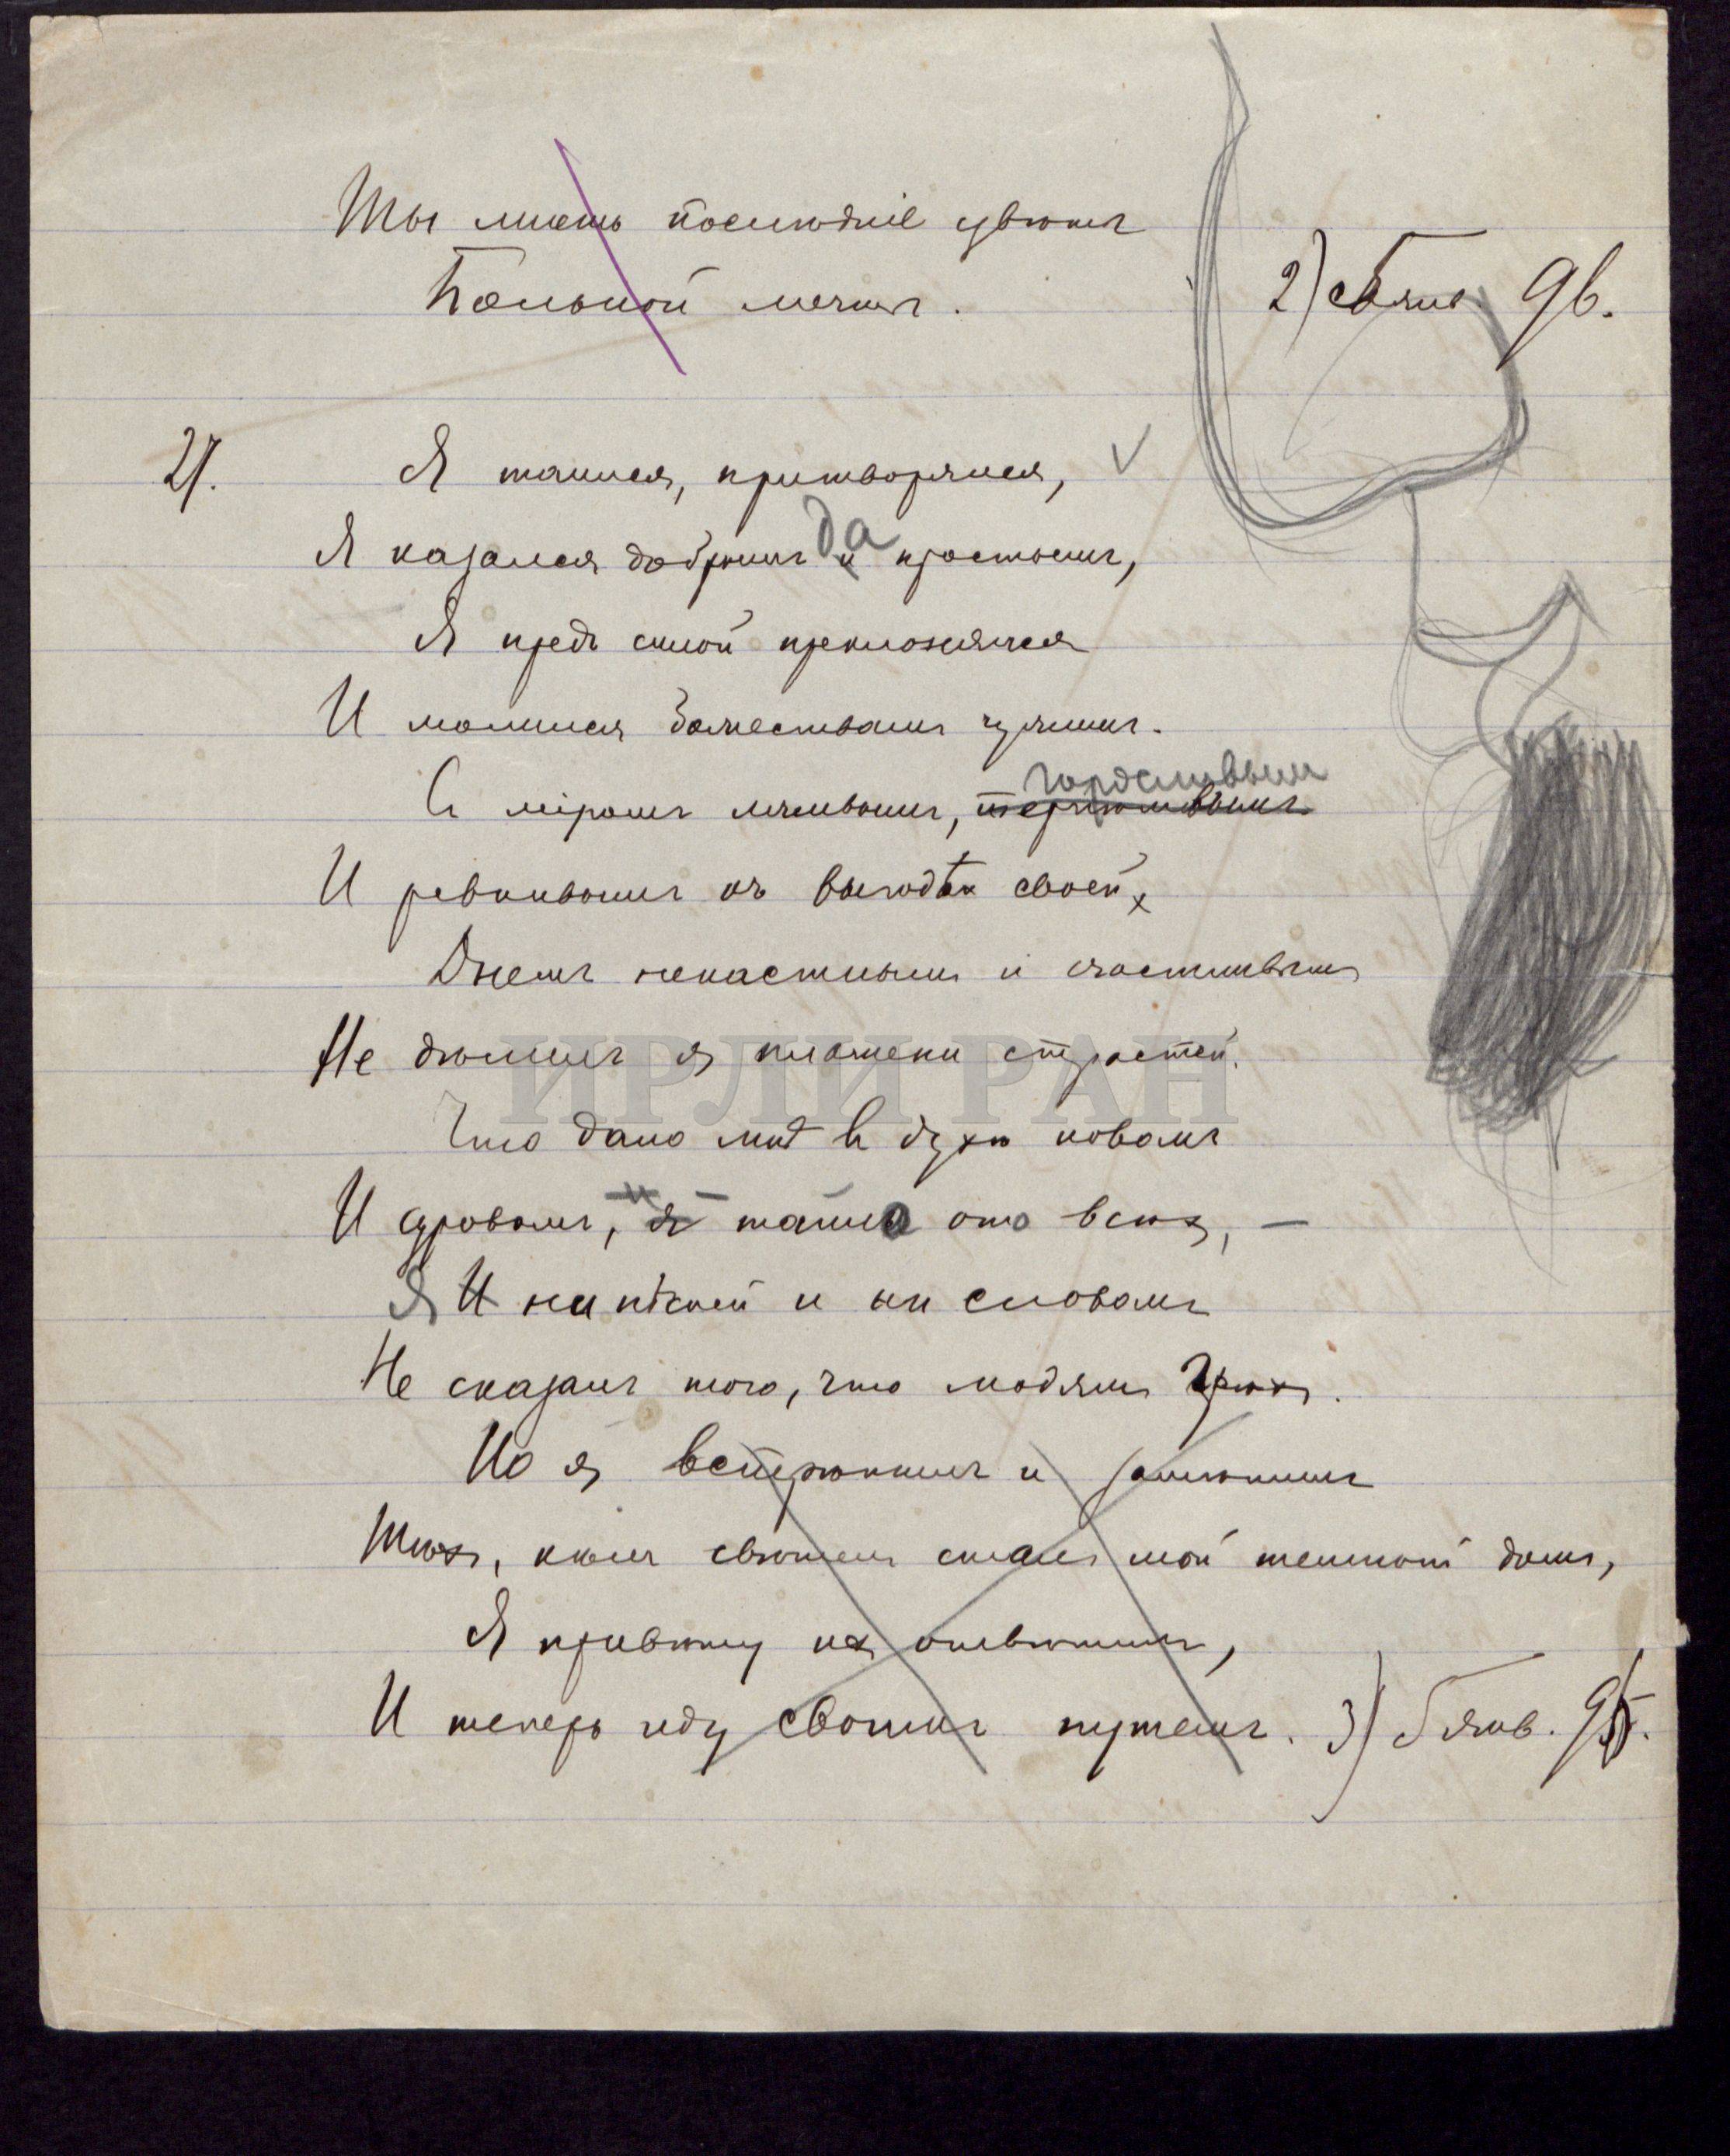 Ты лишь послѣдніе цвѣты
Больной мечты.
2) янв 96.
21.
Я таился, притворялся,
да
Я казался добрымъ и простымъ,
Я предъ силой преклонялся
И молился божествамъ чужимъ.
горделивымъ
Съ міромъ лживымъ, терпѣливымъ
И ревнивымъ къ выгодѣ своей,
Днемъ ненастнымъ и счастливымъ
Не дѣлилъ я пламени страстей.
Что дано мнѣ въ духѣ новомъ
И суровомъ, я таилъ ото всѣхъ, —
Я И ни пѣсней и ни словомъ
Не сказалъ того, что людямъ грѣхъ.
Но я встрѣтилъ и замѣтилъ
Тѣхъ, кѣмъ свѣтелъ сталъ мой темный домъ,
Я привѣту ихъ отвѣтилъ,
И теперь иду своимъ путемъ. 3) 5 янв. 95.
ИРЛИ РАН